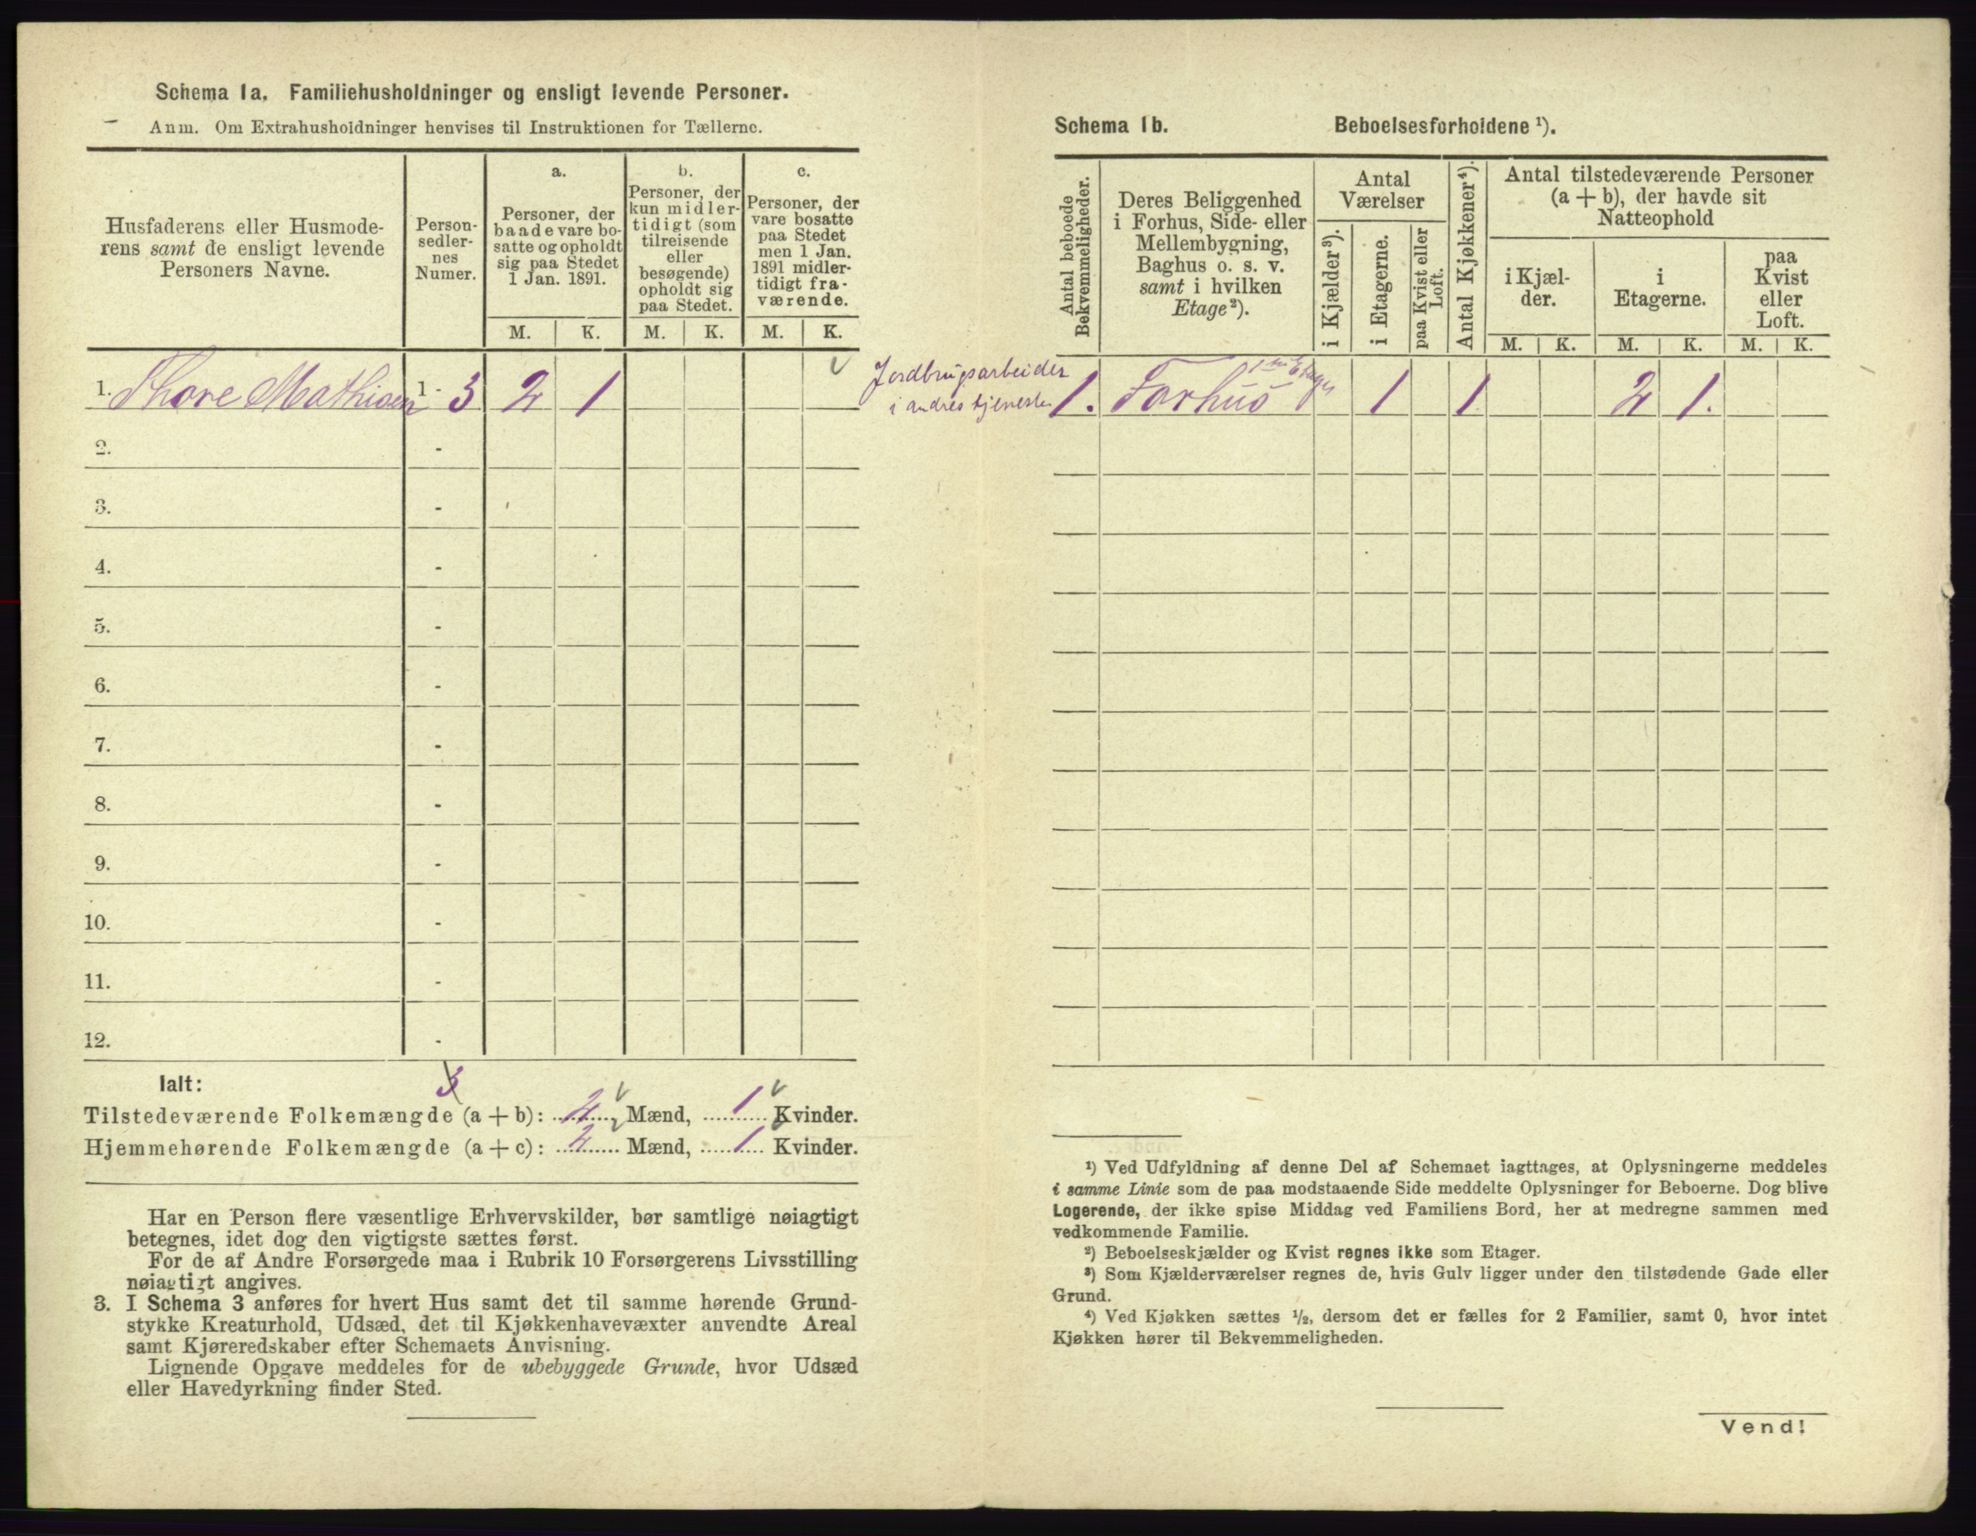 Schema 1a. Familiehusholdninger og ensligt levende Personer.
Anm. Om Extrahusholdninger henvises til Instruktionen for Tællerne.
Husfaderens eller Husmode-
rens samt de ensligt levende
Personers Navne.
Person-
sedler-
nes
Numer.
a.
Personer, der
baade vare bo-
satte og opholdt
sig paa Stedet
1 Jan. 1891.
b.
Personer, der
kun midler-
tidigt (som
tilreisende
eller
besøgende)
opholdt sig
paa Stedet.
c.
Personer, der
vare bosatte
paa Stedet
men 1 Jan.
1891 midler-
tidigt fra-
værende.
M. K. M. K. M. K.
1. Thore Mathisen 1 - 3 2 1
2. -
3. -
4. -
5. -
6. -
7. -
8. -
9. -
10. -
11. -
12. -
Ialt:
3
Tilstedeværende Folkemængde (a + b): 2 Mænd, 1 Kvinder.
Hjemmehørende Folkemængde (a + c): 2 Mænd, 1 Kvinder.
Har en Person flere væsentlige Erhvervskilder, bør samtlige nøiagtigt
betegnes, idet dog den vigtigste sættes først.
For de af Andre Forsørgede maa i Rubrik 10 Forsørgerens Livsstilling
nøiagtigt angives.
3. I Schema 3 anføres for hvert Hus samt det til samme hørende Grund-
stykke Kreaturhold, Udsæd, det til Kjøkkenhavevæxter anvendte Areal
samt Kjøreredskaber efter Schemaets Anvisning.
Lignende Opgave meddeles for de ubebyggede Grunde, hvor Udsæd
eller Havedyrkning finder Sted.
Schema 1b. Beboelsesforholdene ¹).
Antal beboede
Bekvemmeligheder.
Deres Beliggenhed
i Forhus, Side- eller
Mellembygning,
Baghus o. s. v.
samt i hvilken
Etage²).
Antal
Værelser
i Kjælder³).
i Etagerne.
paa Kvist eller
Loft.
Antal Kjøkkener⁴).
Antal tilstedeværende Personer
(a + b), der havde sit
Natteophold
i Kjæl-
der.
i
Etagerne.
paa
Kvist
eller
Loft.
M. K. M. K. M. K.
Jordbrugsarbeider
i andres tjeneste
1. Forhus 1 1 2 1.
¹) Ved Udfyldning af denne Del af Schemaet iagttages, at Oplysningerne meddeles
i samme Linie som de paa modstaaende Side meddelte Oplysninger for Beboerne. Dog blive
Logerende, der ikke spise Middag ved Familiens Bord, her at medregne sammen med
vedkommende Familie.
²) Beboelseskjælder og Kvist regnes ikke som Etager.
³) Som Kjælderværelser regnes de, hvis Gulv ligger under den tilstødende Gade eller
Grund.
⁴) Ved Kjøkken sættes ½, dersom det er fælles for 2 Familier, samt 0, hvor intet
Kjøkken hører til Bekvemmeligheden.
Vend!